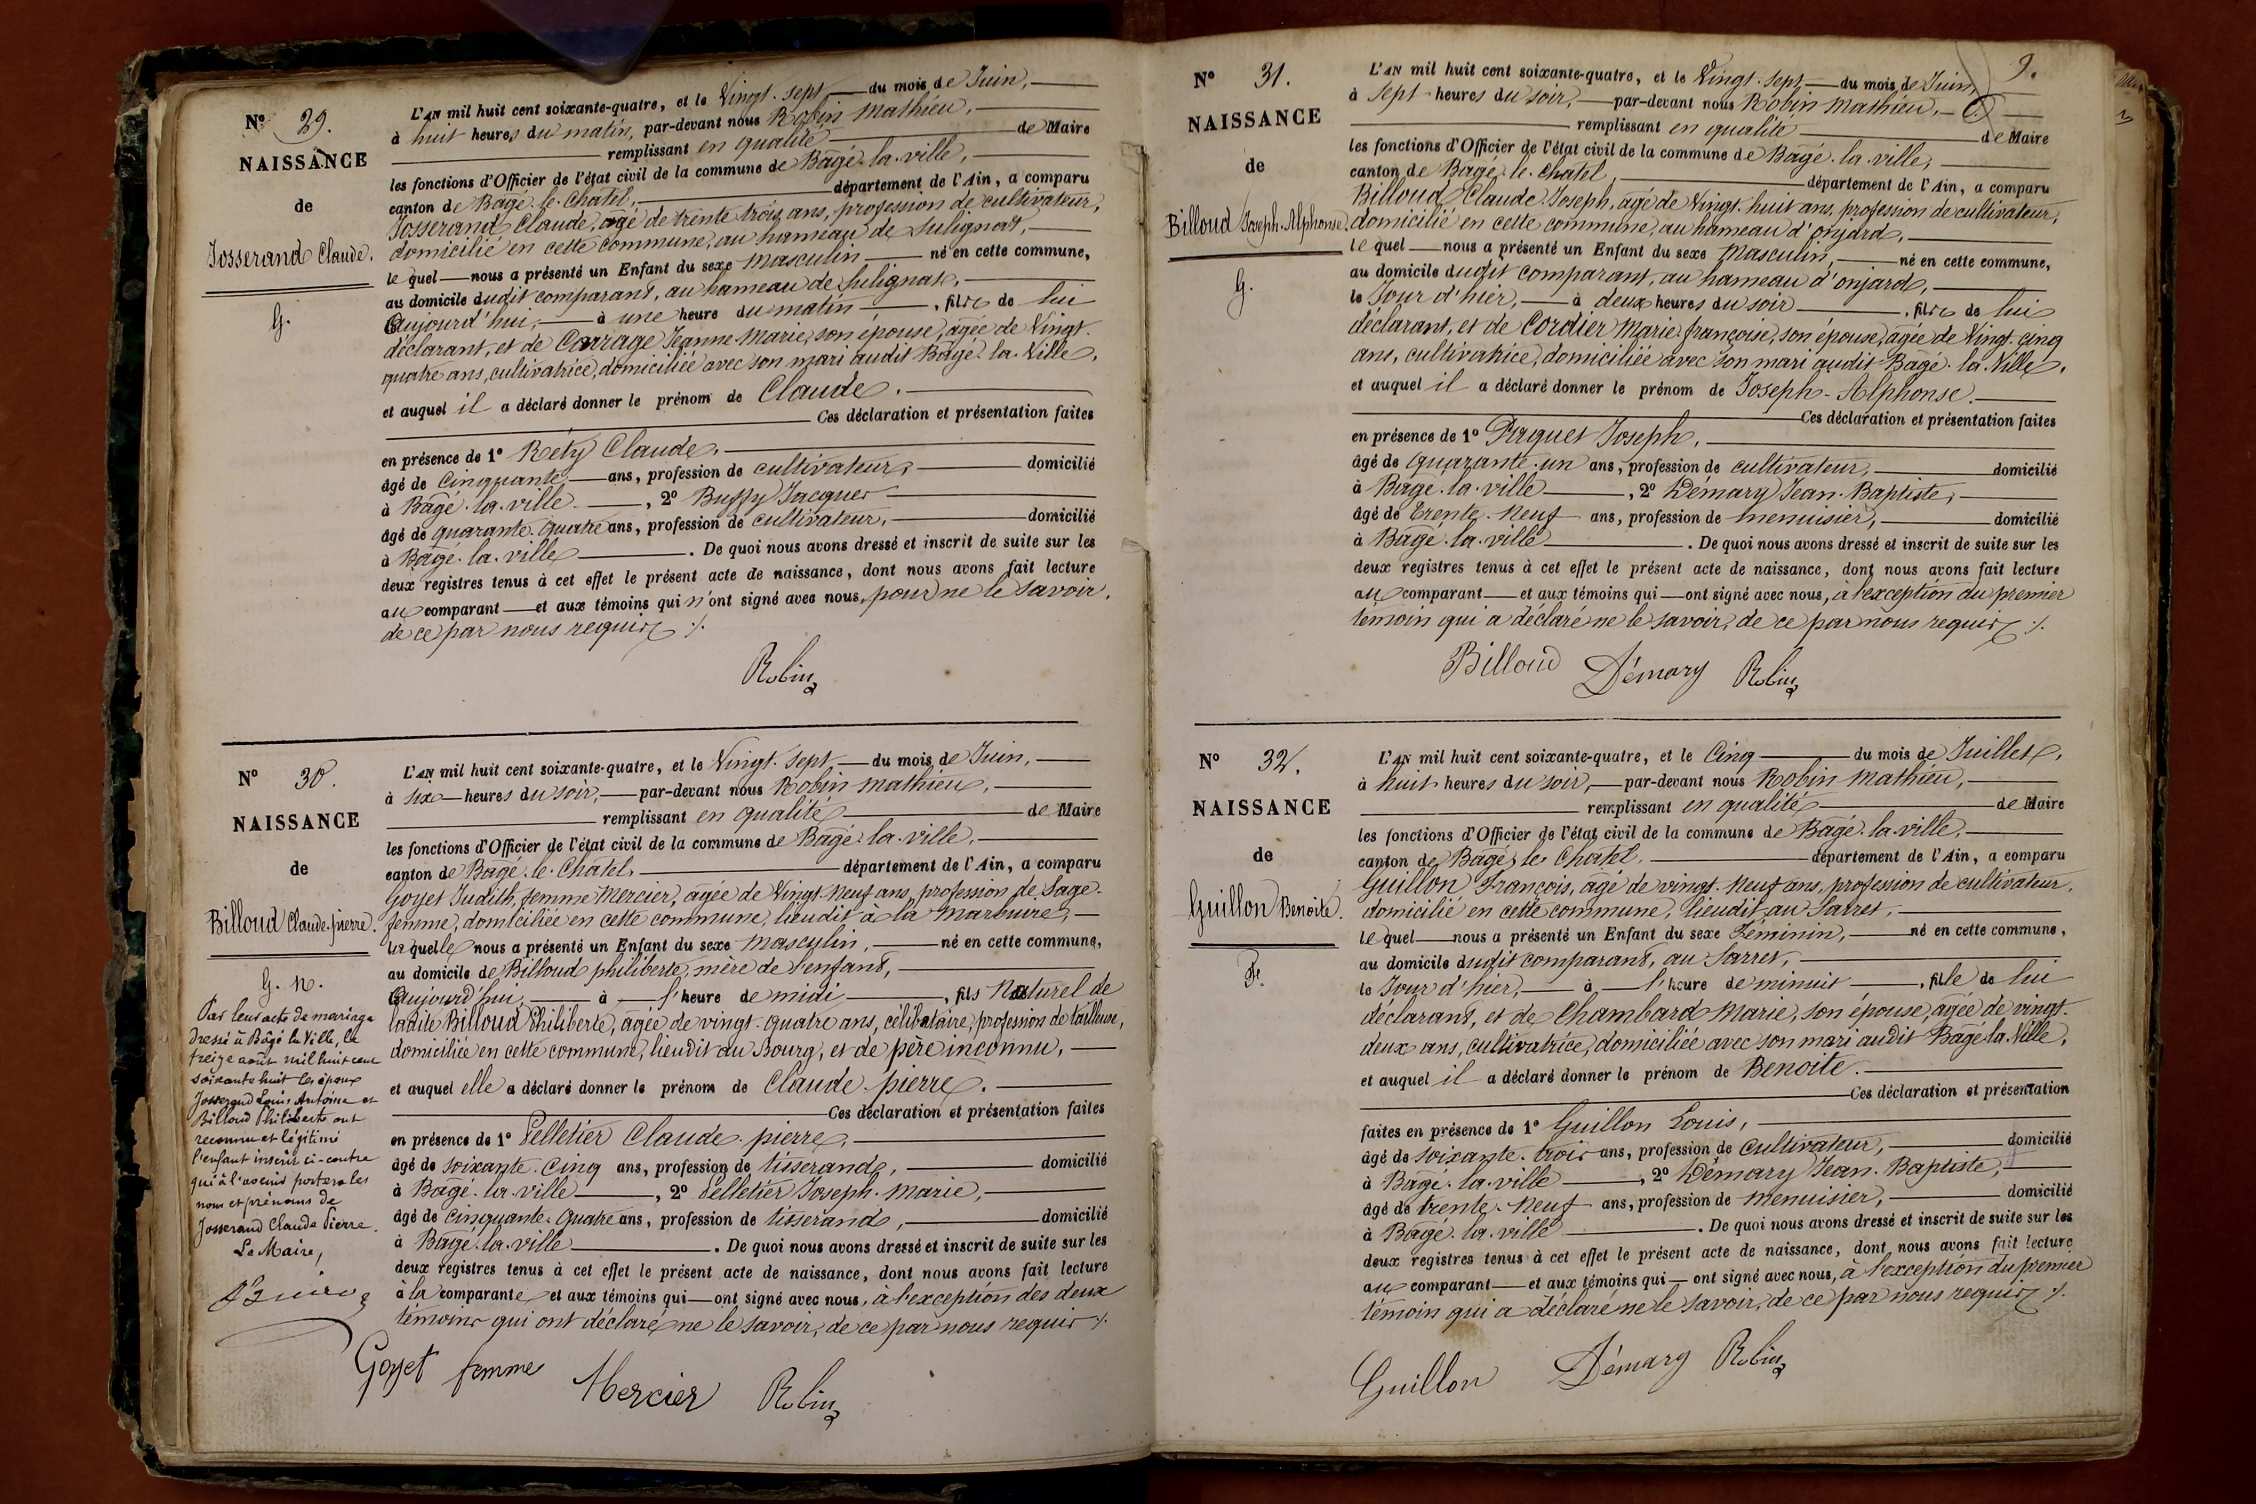 Nº 29.
NAISSANCE
de
Josserand Claude.
G.
L'AN mil huit cent soixante-quatre, et le Vingt-sept du mois de Juin,
à huit heures du matin, par-devant nous Robin Mathieu,
remplissant en qualité de Maire
les fonctions d'Officier de l'état civil de la commune de Bâgé-la-ville,
canton de Bâgé-le-Chatel, département de l'Ain, a comparu
Josserand Claude, agé de trente trois ans, profession de cultivateur,
domicilié en cette commune, au hameau de Sulignat,
le quel nous a présenté un Enfant du sexe masculin né en cette commune,
au domicile dudit comparant, au hameau de Sulignat,
aujourd'hui, à une heure du matin, fils de lui
déclarant, et de Carrage Jeanne Marie, son épouse, âgée de Vingt-
quatre ans, cultivatrice, domiciliée avec son mari audit Bâgé-la-Ville,
et auquel il a déclaré donner le prénom de Claude.
Ces déclaration et présentation faites
en présence de 1º Réty Claude,
âgé de Cinquante ans, profession de cultivateur, domicilié
à Bâgé-la-ville, 2º Buffy Jacques
âgé de quarante-quatre ans, profession de cultivateur, domicilié
à Bâgé-la-ville. De quoi nous avons dressé et inscrit de suite sur les
deux registres tenus à cet effet le présent acte de naissance, dont nous avons fait lecture
au comparant et aux témoins qui n'ont signé avec nous, pour ne le savoir,
de ce par nous requis ./.
Robin
Nº 30.
NAISSANCE
de
Billoud Claude-pierre.
G. N.
Par leur acte de mariage
dressé à Bâgé la Ville, le
treize août mil huit cent
soixante huit les époux
Josserand Louis Antoine et
Billoud Philiberte ont
reconnu et légitimé
l'enfant inscrit ci-contre
qui à l'avenir portera les
nom et prénoms de
Josserand Claude Pierre.
Le Maire,
L'AN mil huit cent soixante-quatre, et le Vingt-sept du mois de Juin,
à six heures du soir, par-devant nous Robin Mathieu,
remplissant en qualité de Maire
les fonctions d'Officier de l'état civil de la commune de Bâgé-la-ville,
canton de Bâgé-le-Chatel, département de l'Ain, a comparu
Goyet Judith, femme Mercier, âgée de Vingt-neuf ans, profession de Sage-
femme, domiciliée en cette commune, lieudit à la marbuire,
la quelle nous a présenté un Enfant du sexe masculin, né en cette commune,
au domicile de Billoud philiberte, mère de l'enfant,
aujourd'hui, à l'heure de midi, fils Naturel de
ladite Billoud Philiberte, âgée de vingt-quatre ans, célibataire, profession de tailleuse,
domiciliée en cette commune, lieudit au Bourg, et de père inconnu,
et auquel elle a déclaré donner le prénom de Claude-pierre.
Ces déclaration et présentation faites
en présence de 1º Pelletier Claude-pierre,
âgé de soixante-cinq ans, profession de tisserand, domicilié
à Bâgé-la-ville, 2º Pelletier Joseph-Marie,
âgé de cinquante-quatre ans, profession de tisserand, domicilié
à Bâgé-la-ville. De quoi nous avons dressé et inscrit de suite sur les
deux registres tenus à cet effet le présent acte de naissance, dont nous avons fait lecture
à la comparante et aux témoins qui ont signé avec nous, à l'exception des deux
témoins qui ont déclaré ne le savoir, de ce par nous requis ./.
Goyet femme Mercier Robin
9.
Nº 31.
NAISSANCE
de
Billoud Joseph-Alphonse.
G.
L'AN mil huit cent soixante-quatre, et le Vingt-sept du mois de Juin
à sept heures du soir, par-devant nous Robin Mathieu,
remplissant en qualité de Maire
les fonctions d'Officier de l'état civil de la commune de Bâgé-la-ville,
canton de Bâgé-le-Chatel, département de l'Ain, a comparu
Billoud Claude-Joseph, âgé de Vingt-huit ans, profession de cultivateur,
domicilié en cette commune, au hameau d'onjard,
le quel nous a présenté un Enfant du sexe masculin, né en cette commune,
au domicile dudit comparant, au hameau d'onjard,
le Jour d'hier, à deux heures du soir, fils de lui
déclarant, et de Cordier Marie-françoise, son épouse, âgée de Vingt-cinq
ans, cultivatrice, domiciliée avec son mari audit Bâgé-la-Ville,
et auquel il a déclaré donner le prénom de Joseph-Alphonse.
Ces déclaration et présentation faites
en présence de 1º Paquet Joseph,
âgé de quarante-un ans, profession de cultivateur, domicilié
à Bâgé-la-ville, 2º Démary Jean-Baptiste,
âgé de trente-neuf ans, profession de menuisier, domicilié
à Bâgé-la-ville. De quoi nous avons dressé et inscrit de suite sur les
deux registres tenus à cet effet le présent acte de naissance, dont nous avons fait lecture
au comparant et aux témoins qui ont signé avec nous, à l'exception du premier
témoin qui a déclaré ne le savoir, de ce par nous requis ./.
Billoud Démary Robin
Nº 32.
NAISSANCE
de
Guillon Benoite.
F.
L'AN mil huit cent soixante-quatre, et le Cinq du mois de Juillet,
à huit heures du soir, par-devant nous Robin Mathieu,
remplissant en qualité de Maire
les fonctions d'Officier de l'état civil de la commune de Bâgé-la-ville,
canton de Bâgé-le-Chatel, département de l'Ain, a comparu
Guillon François, âgé de vingt-neuf ans, profession de cultivateur,
domicilié en cette commune, lieudit au Sarret,
le quel nous a présenté un Enfant du sexe Féminin, né en cette commune,
au domicile dudit comparant, au Sarret,
le Jour d'hier, à l'heure de minuit, fille de lui
déclarant, et de Chambard Marie, son épouse, âgée de vingt-
deux ans, cultivatrice, domiciliée avec son mari audit Bâgé-la-Ville,
et auquel il a déclaré donner le prénom de Benoite.
Ces déclaration et présentation
faites en présence de 1º Guillon Louis,
âgé de soixante-trois ans, profession de cultivateur, domicilié
à Bâgé-la-ville, 2º Démary Jean-Baptiste,
âgé de trente-neuf ans, profession de menuisier, domicilié
à Bâgé-la-ville. De quoi nous avons dressé et inscrit de suite sur les
deux registres tenus à cet effet le présent acte de naissance, dont nous avons fait lecture
au comparant et aux témoins qui ont signé avec nous, à l'exception du premier
témoin qui a déclaré ne le savoir, de ce par nous requis ./.
Guillon Démary Robin